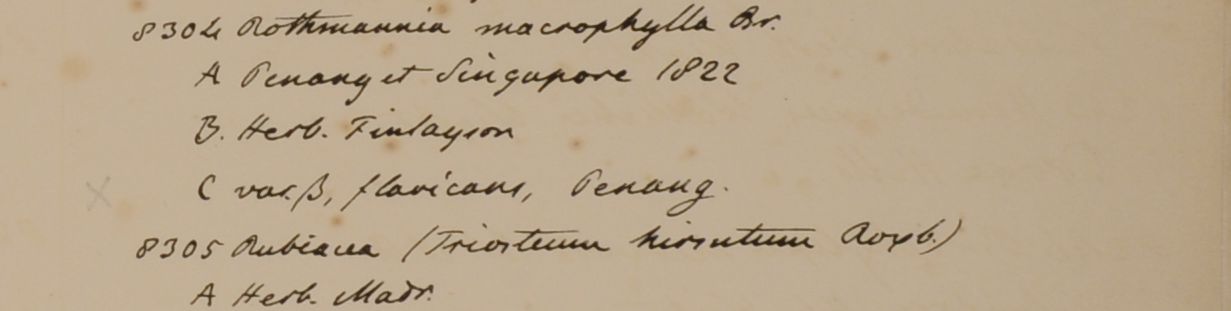 8304 Rothmannia macrophylla Br.
A Penang et Singapore 1822
B. Herb. Finlayson
C var. β, flavicans, Penang.
8305 Rubiacea (Triosteum hirsutum Roxb.)
A Herb. Madr.